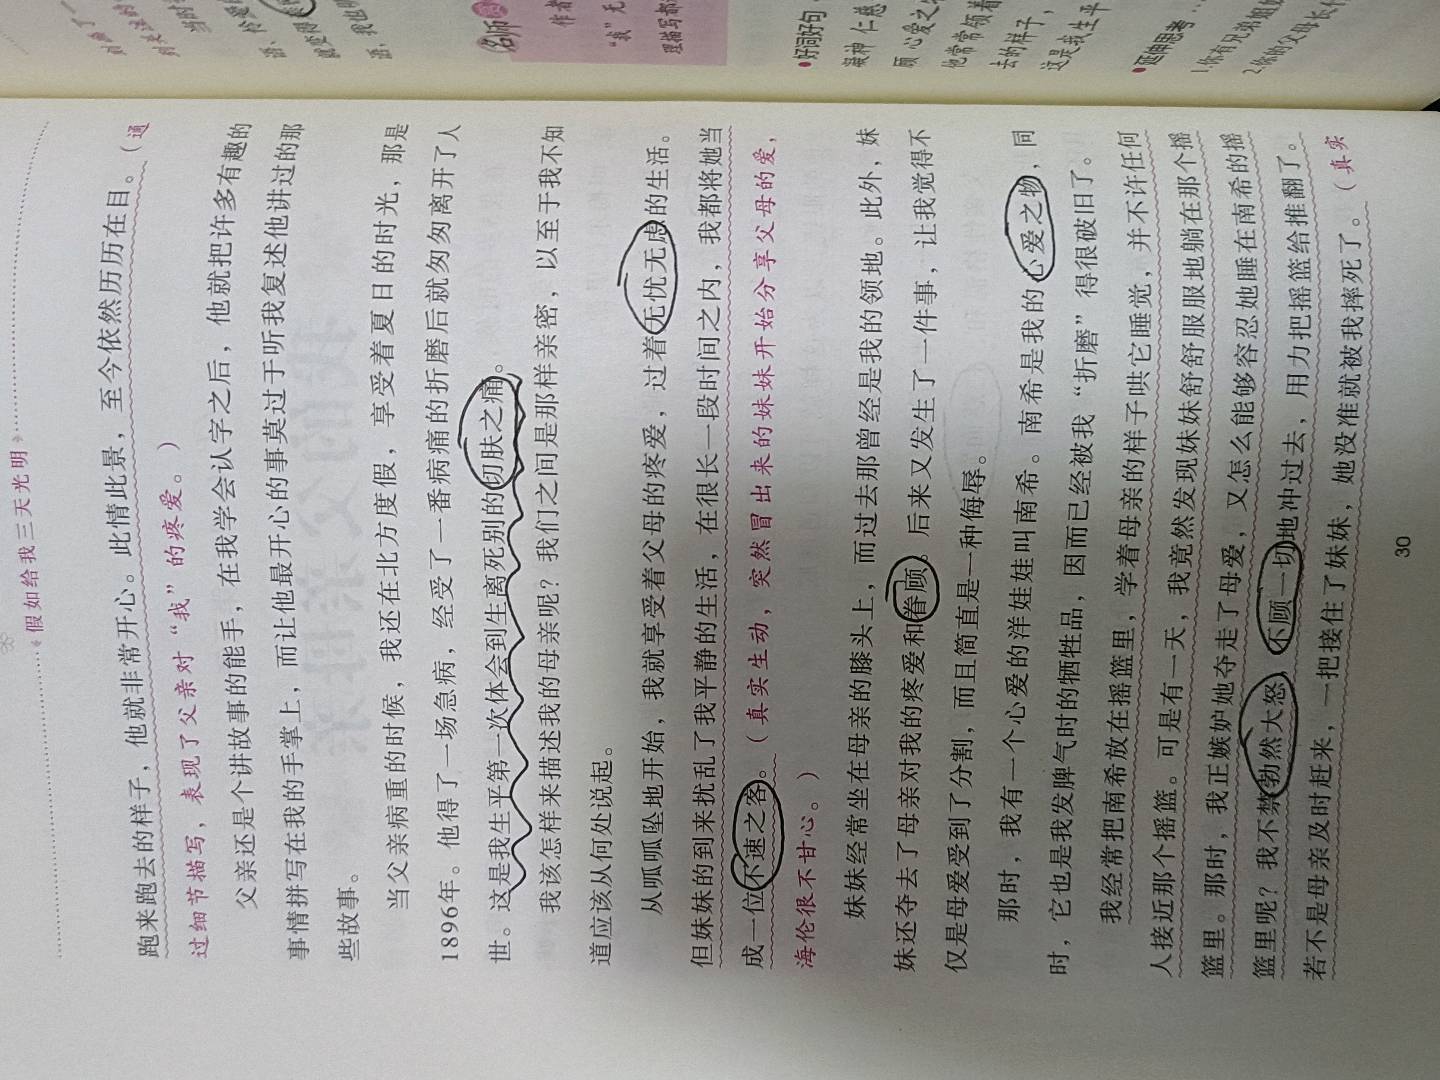 假如给我三天光明
跑来跑去的样子，他就非常开心。此情此景，至今依然历历在目。（通
过细节描写，表现了父亲对“我”的疼爱。）
父亲还是个讲故事的能手，在我学会认字之后，他就把许多有趣的
事情拼写在我的手掌上，而让他最开心的事莫过于听我复述他讲过的那
些故事。
当父亲病重的时候，我还在北方度假，享受着夏日的时光，那是
1896年。他得了一场急病，经受了一番病痛的折磨后就匆匆离开了人
世。这是我生平第一次体会到生离死别的切肤之痛。
我该怎样来描述我的母亲呢？我们之间是那样亲密，以至于我不知
道应该从何处说起。
从呱呱坠地开始，我就享受着父母的疼爱，过着无忧无虑的生活。
但妹妹的到来扰乱了我平静的生活，在很长一段时间之内，我都将她当
成一位不速之客。（真实生动，突然冒出来的妹妹开始分享父母的爱，
海伦很不甘心。）
妹妹经常坐在母亲的膝头上，而过去那曾经是我的领地。此外，妹
妹还夺去了母亲对我的疼爱和眷顾。后来又发生了一件事，让我觉得不
仅是母爱受到了分割，而且简直是一种侮辱。
那时，我有一个心爱的洋娃娃叫南希。南希是我的心爱之物，同
时，它也是我发脾气时的牺牲品，因而已经被我“折磨”得很破旧了。
我经常把南希放在摇篮里，学着母亲的样子哄它睡觉，并不许任何
人接近那个摇篮。可是有一天，我竟然发现妹妹舒舒服服地躺在那个摇
篮里。那时，我正嫉妒她夺走了母爱，又怎么能够容忍她睡在南希的摇
篮里呢？我不禁勃然大怒，不顾一切地冲过去，用力把摇篮给推翻了。
若不是母亲及时赶来，一把接住了妹妹，她没准就被我摔死了。（真实
30
名师
作者
“我”无
理描写都
好词好句
凝神 仁慈
顾 心爱之
他常常领着
去的样子，
这是我生平
延伸思考
1.你有兄弟姐妹
2.你的父母长